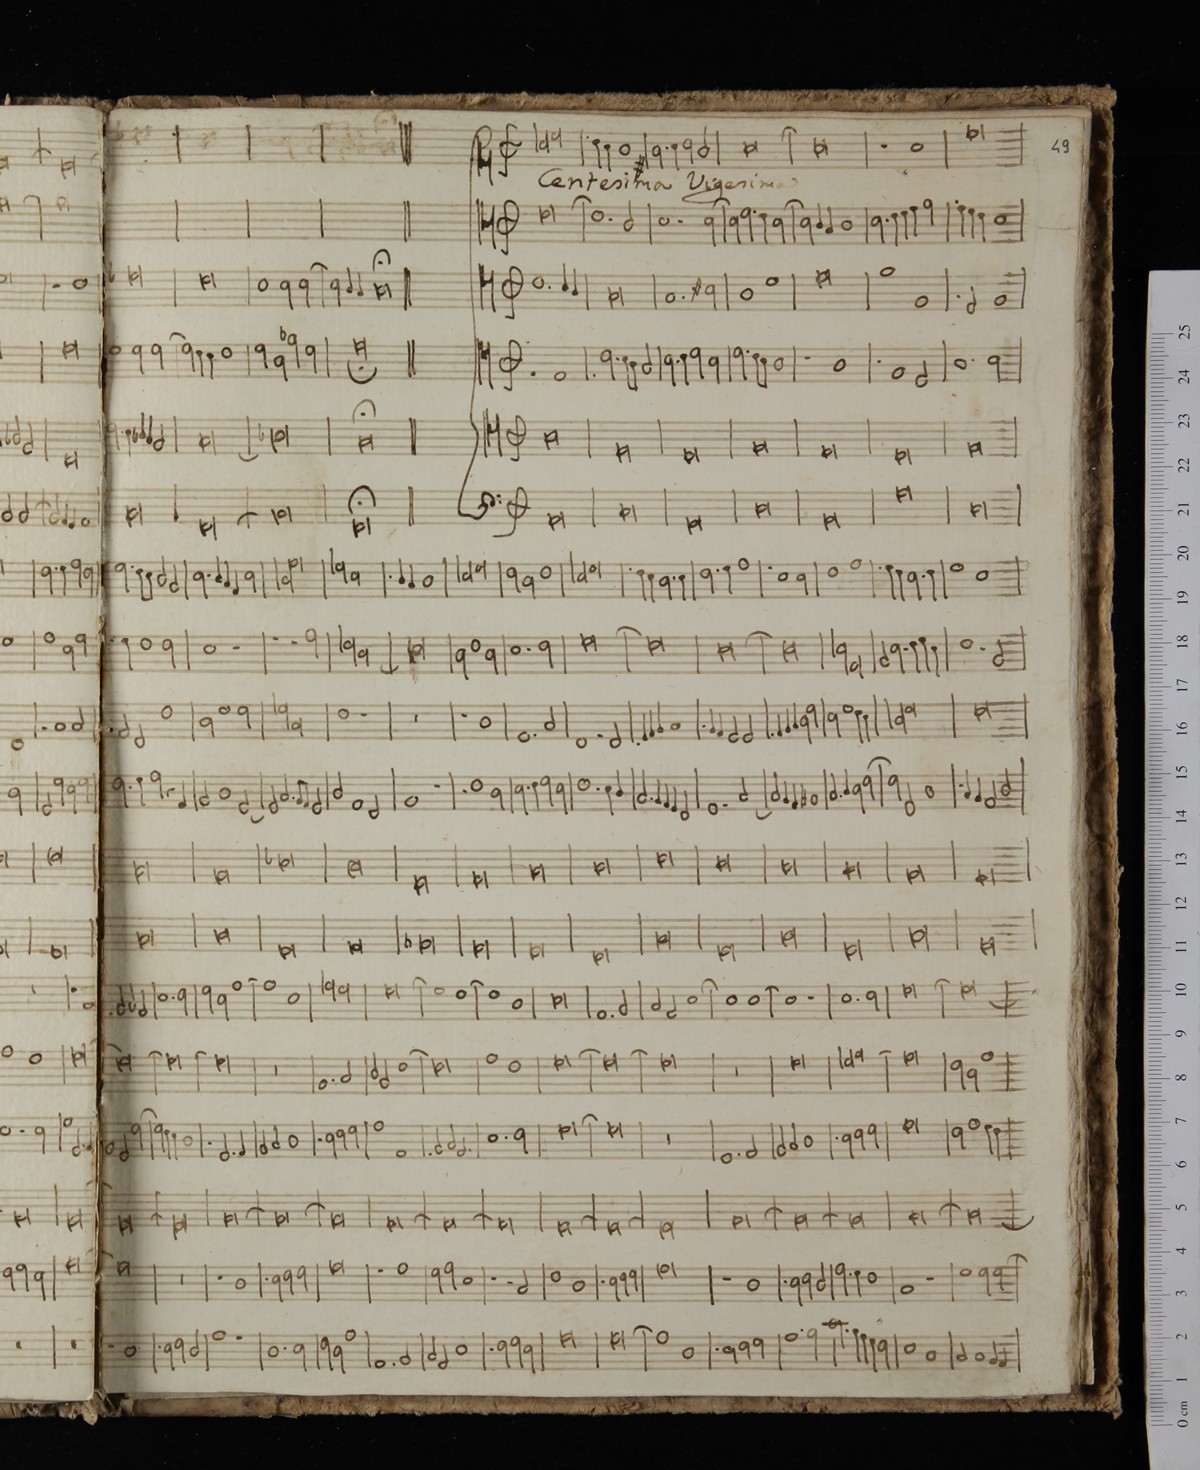 49
Centesima Vigesima
25
24
23
22
21
20
19
18
17
16
15
14
13
12
11
10
9
8
7
6
5
4
3
2
1
0 cm